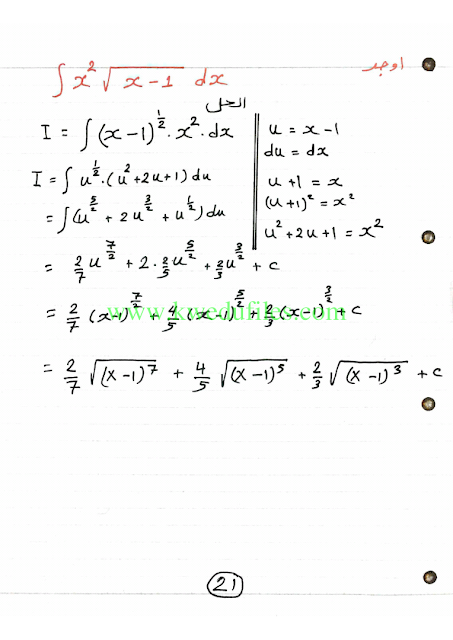 اوجد
∫ x² √(x-1) dx
الحل
I = ∫ (x-1)^(1/2) · x² · dx
u = x-1
du = dx
u+1 = x
(u+1)² = x²
u²+2u+1 = x²
I = ∫ u^(1/2) · (u²+2u+1) du
= ∫ (u^(5/2) + 2u^(3/2) + u^(1/2)) du
= 2/7 u^(7/2) + 2 · 2/5 u^(5/2) + 2/3 u^(3/2) + c
= 2/7 (x-1)^(7/2) + 4/5 (x-1)^(5/2) + 2/3 (x-1)^(3/2) + c
www.kwedufiles.com
= 2/7 √(x-1)⁷ + 4/5 √(x-1)⁵ + 2/3 √(x-1)³ + c
21